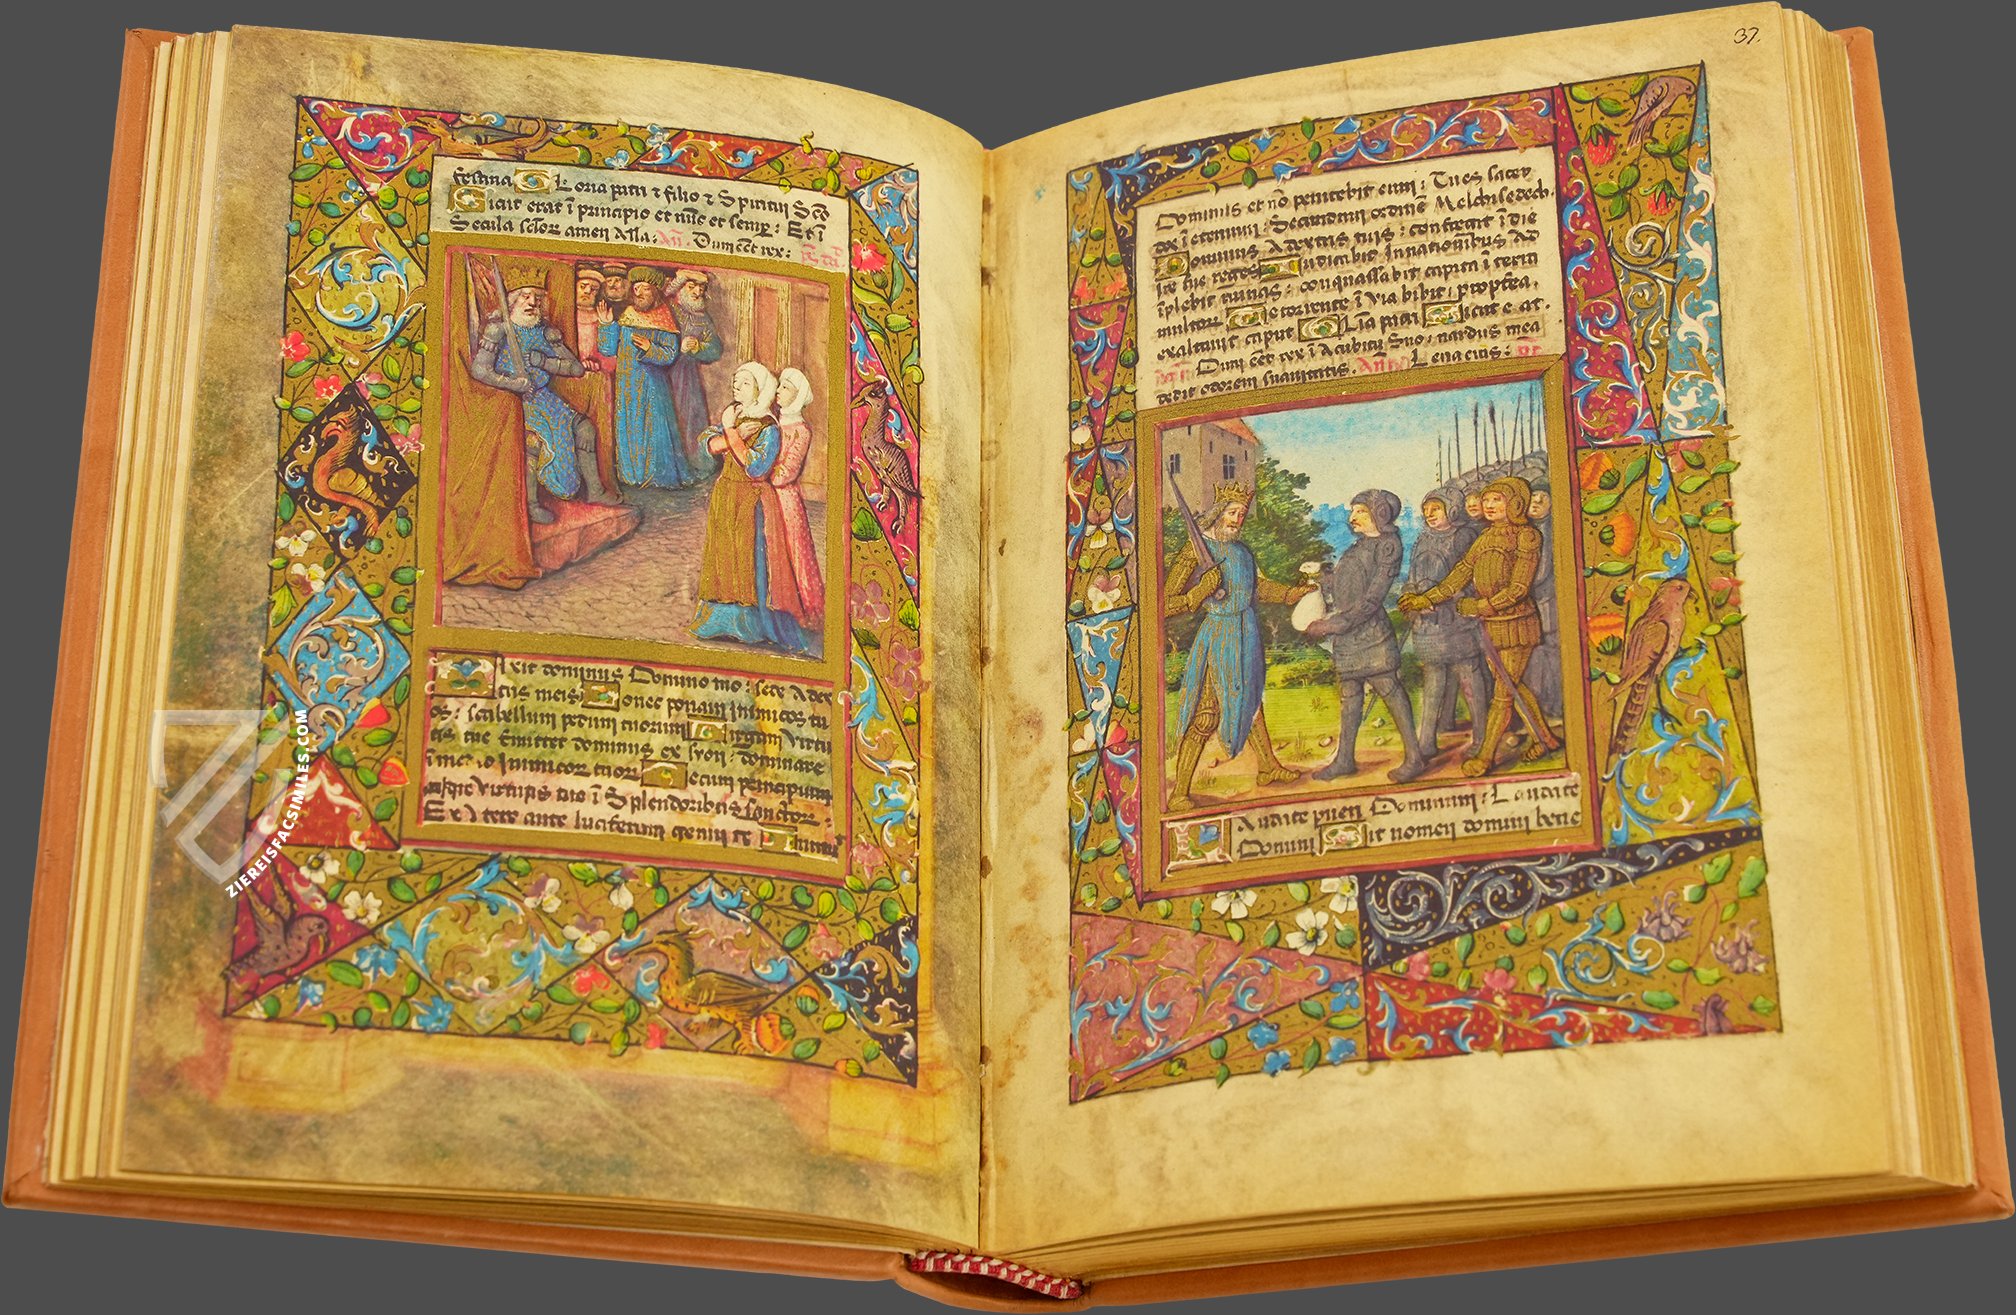 festina G Loria patri ⁊ filio ⁊ Spiritui Sco
Sicut erat ī principio et nūc et semp : Et ī
Secula sclor amen Alla : An. Dum eēt rex :
Ixit dominus Domino mo : sede A dex
tris meis Donec ponam Inimicos tu
os : scabellum pedum tuorum Virgam virtu
tis tue Emittet dominus ex syon : dominare
ī me⁊io Inimicor tuor Tecum principium
In die virtutis tue ī Splendoribus sanctor :
Ex vtero ante luciferum genui te Iurau
ZIEREISFACSIMILES.COM
37.
Dominus et nō penitebit eum : Tu es sacer
dos ī eternum : Secundum ordinē Melchisedech.
Dominus A dextris tuis : confregit ī die
Ire sue reges Iudicabit In nationibus
īplebit ruinas : conquassabit capita ī terra
multor De torrente ī via bibit : propterea
exaltauit caput Glia patri Sicut erat.
Dum eēt rex ī Acubitu Suo : nardus mea
dedit odorem suauitatis. An. Leua eius : ps
Audate pueri Dominum : Laudate
Domini Sit nomen domini bene